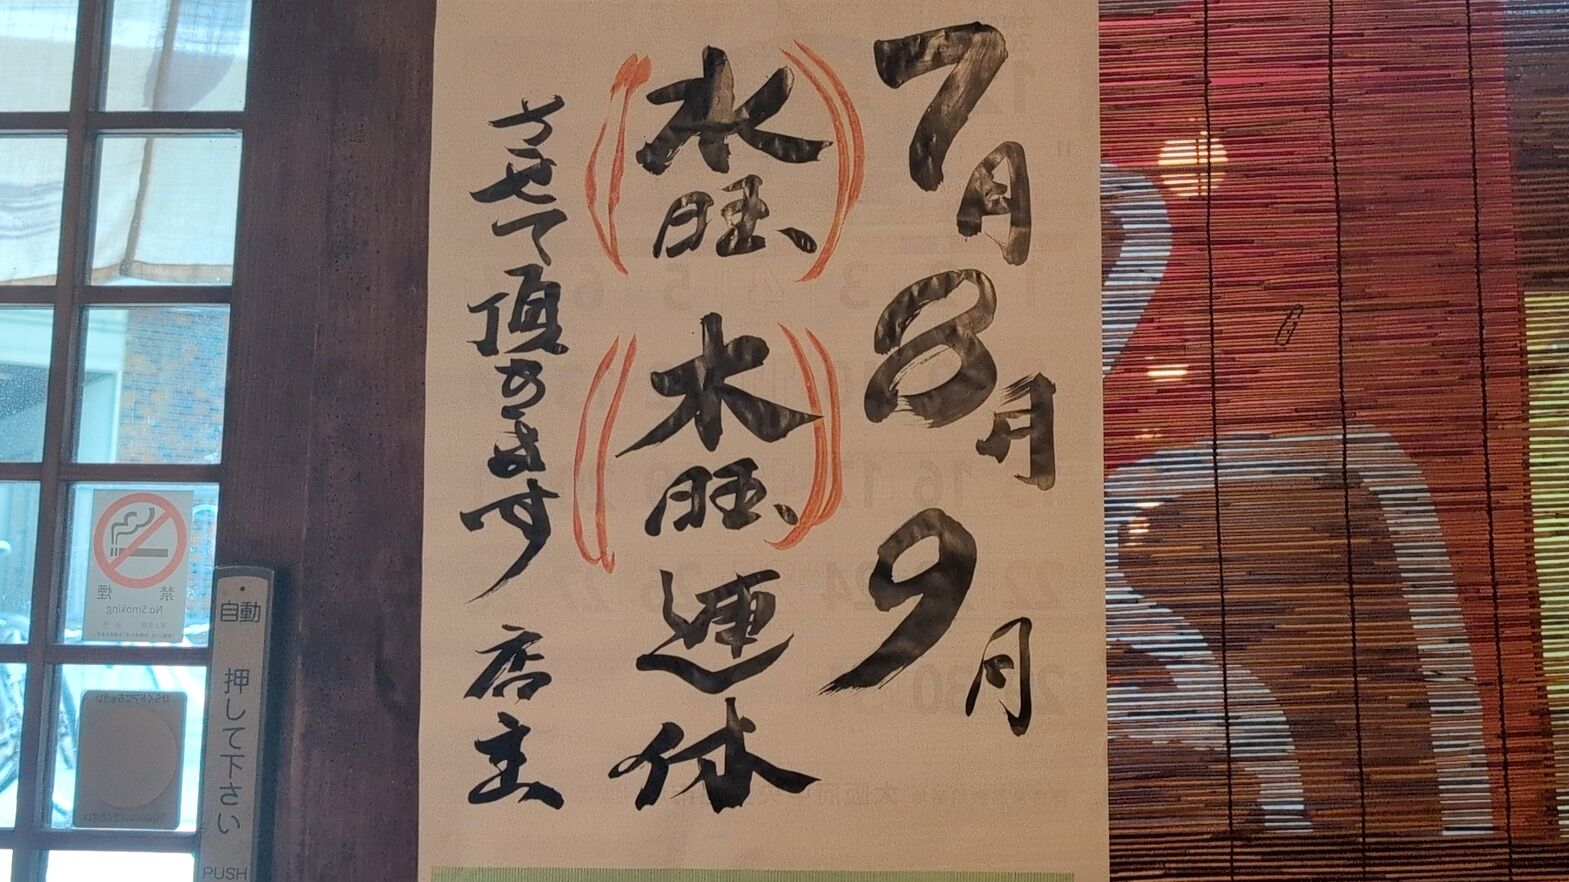 7月8月9月
水旺、木旺、連休
させて頂きます 店主
自動
押して下さい
PUSH
禁煙
No Smoking